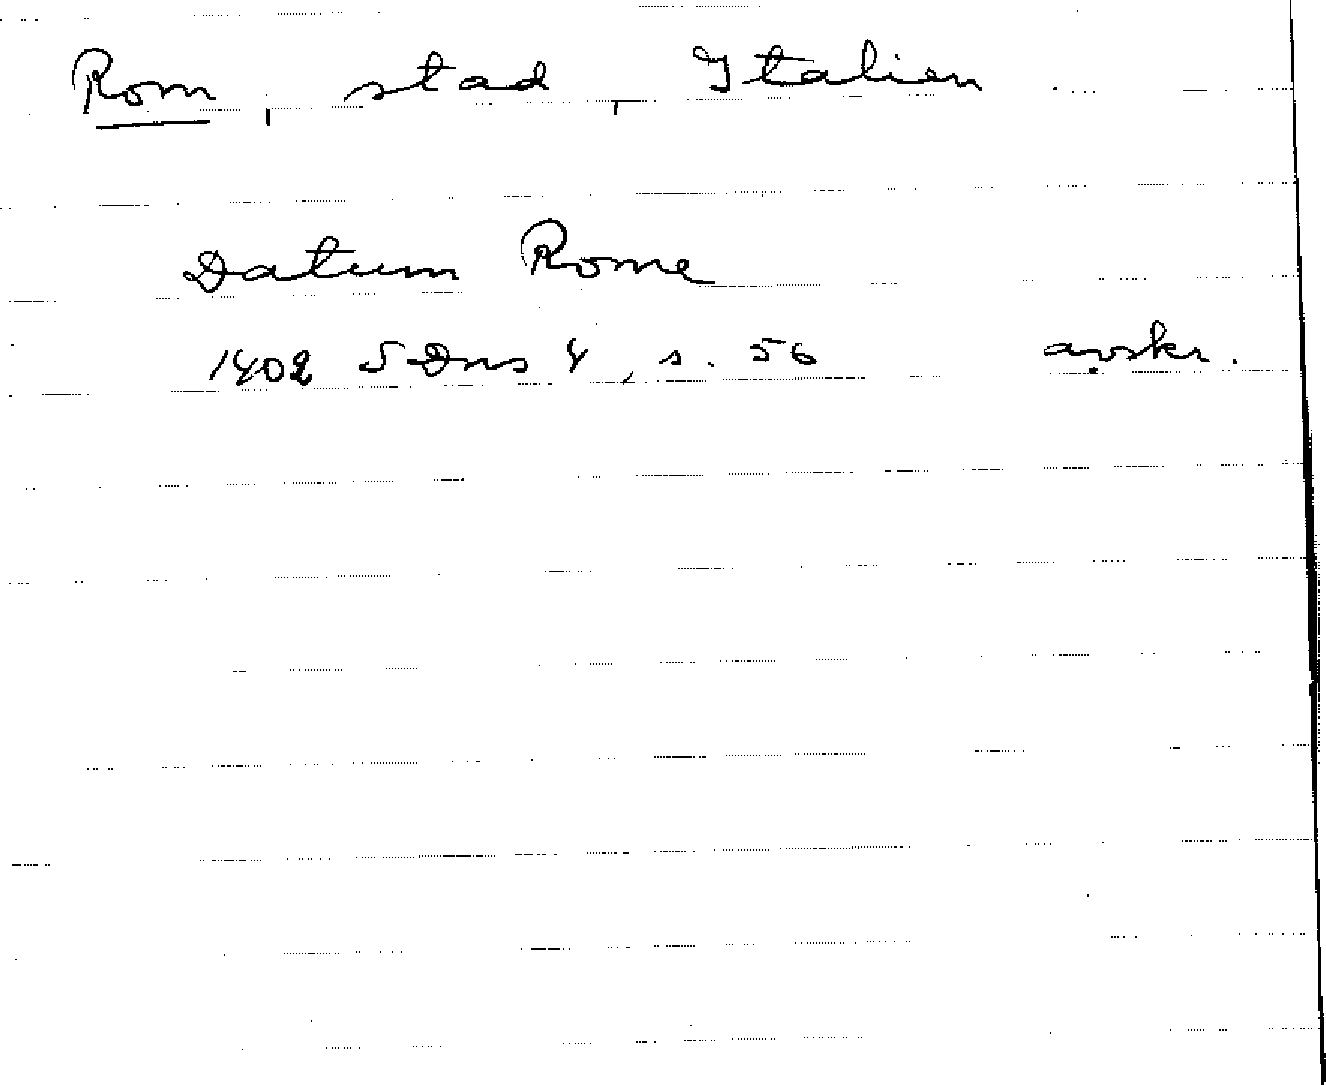 Rom, stad, Italien
Datum Rome
1402 SDns 4, s. 56 avskr.